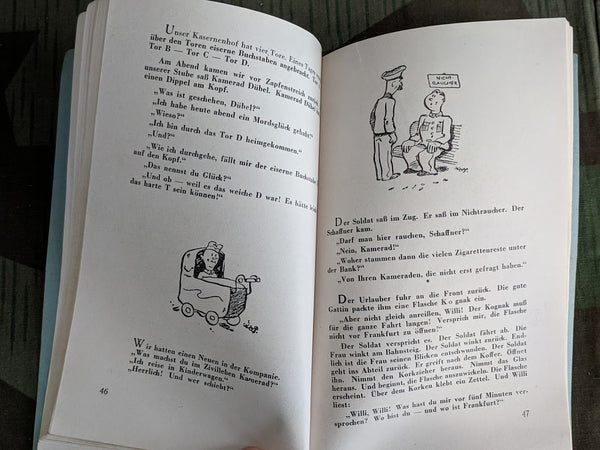 Unser Kasernenhof hat vier Tore. Eines Tages
über den Toren eiserne Buchstaben angebracht.
Tor B — Tor C — Tor D.
Am Abend kamen wir vor Zapfenstreich
unserer Stube saß Kamerad Dübel. Kamerad Dübel
einen Dippel am Kopf.
„Was ist geschehen, Dübel?“
„Ich habe heute abend ein Mordsglück gehabt“
„Wieso?“
„Ich bin durch das Tor D heimgekommen.“
„Und?“
„Wie ich durchgehe, fällt mir der eiserne Buchstabe
auf den Kopf.“
„Das nennst du Glück?“
„Und ob — weil es das weiche D war! Es hätte
das harte T sein können!“
Wir hatten einen Neuen in der Kompanie.
„Was machst du im Zivilleben Kamerad?“
„Ich reise in Kinderwagen.“
„Herrlich! Und wer schiebt?“
46
NICHT-
RAUCHER
Der Soldat saß im Zug. Er saß im Nichtraucher. Der
Schaffner kam.
„Darf man hier rauchen, Schaffner?“
„Nein, Kamerad!“
„Woher stammen dann die vielen Zigarettenreste unter
der Bank?“
„Von Ihren Kameraden, die nicht erst gefragt haben.“
Der Urlauber fuhr an die Front zurück. Die gute
Gattin packte ihm eine Flasche Kognak ein.
„Aber nicht gleich anreißen, Willi! Der Kognak muß
für die ganze Fahrt langen! Versprich mir, die Flasche
nicht vor Frankfurt zu öffnen!“
Der Soldat verspricht es. Der Soldat fährt ab. Die
Frau winkt am Bahnsteig. Der Soldat winkt zurück. End-
lich ist die Frau seinen Blicken entschwunden. Der Soldat
geht ins Abteil zurück. Er greift nach dem Koffer. Öffnet
ihn. Nimmt den Korkzieher heraus. Nimmt das Glas
heraus. Und beginnt, die Flasche auszuwickeln. Die Flasche
erscheint. Über dem Korken klebt ein Zettel. Und Willi
liest:
„Willi, Willi! Was hast du mir vor fünf Minuten ver-
sprochen? Wo bist du — und wo ist Frankfurt?“
47